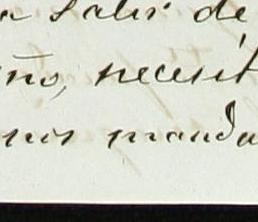 a salir de
ño, necesit
nos manda